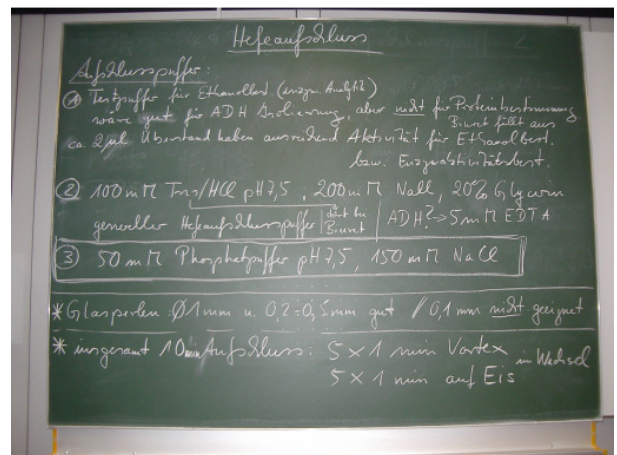 Hefeaufschluss
Aufschlusspuffer:
① Testpuffer für Ethanoltest (enzym. Analytik)
wäre gut für ADH Isolierung, aber nicht für Proteinbestimmung
Biuret fällt aus
ca. 2µl Überstand haben ausreichend Aktivität für Ethanolbest.
bzw. Enzymaktivitätsbest.
② 100mM Tris/HCl pH 7,5, 200mM NaCl, 20% Glycerin
genereller Hefeaufschlusspuffer | bei Biuret | ADH? → 5mM EDTA
③ 50mM Phosphatpuffer pH 7,5, 150mM NaCl
* Glasperlen: Ø 1mm u. 0,2-0,5mm gut // 0,1mm nicht geeignet
* insgesamt 10min Aufschluss: 5 x 1 min Vortex im Wechsel
5 x 1 min auf Eis